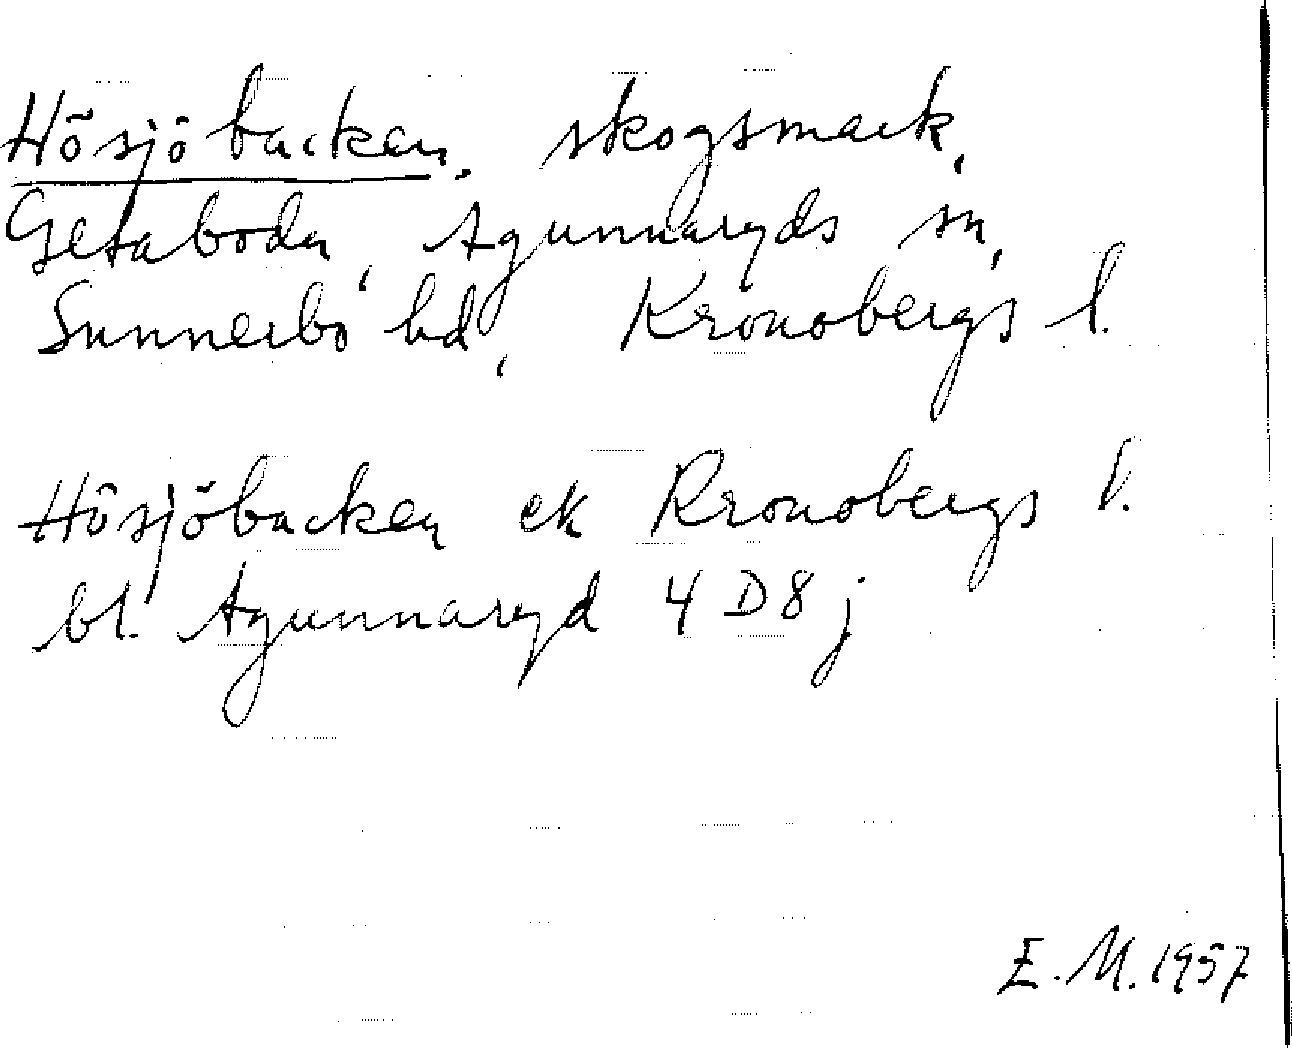 Hösjöbacken, skogsmark,
Getaboda, Agunnaryds sn,
Sunnerbo hd, Kronobergs l.
Hösjöbacken ek Kronobergs l.
bl. Agunnaryd 4 D 8 j
E. M. 1957